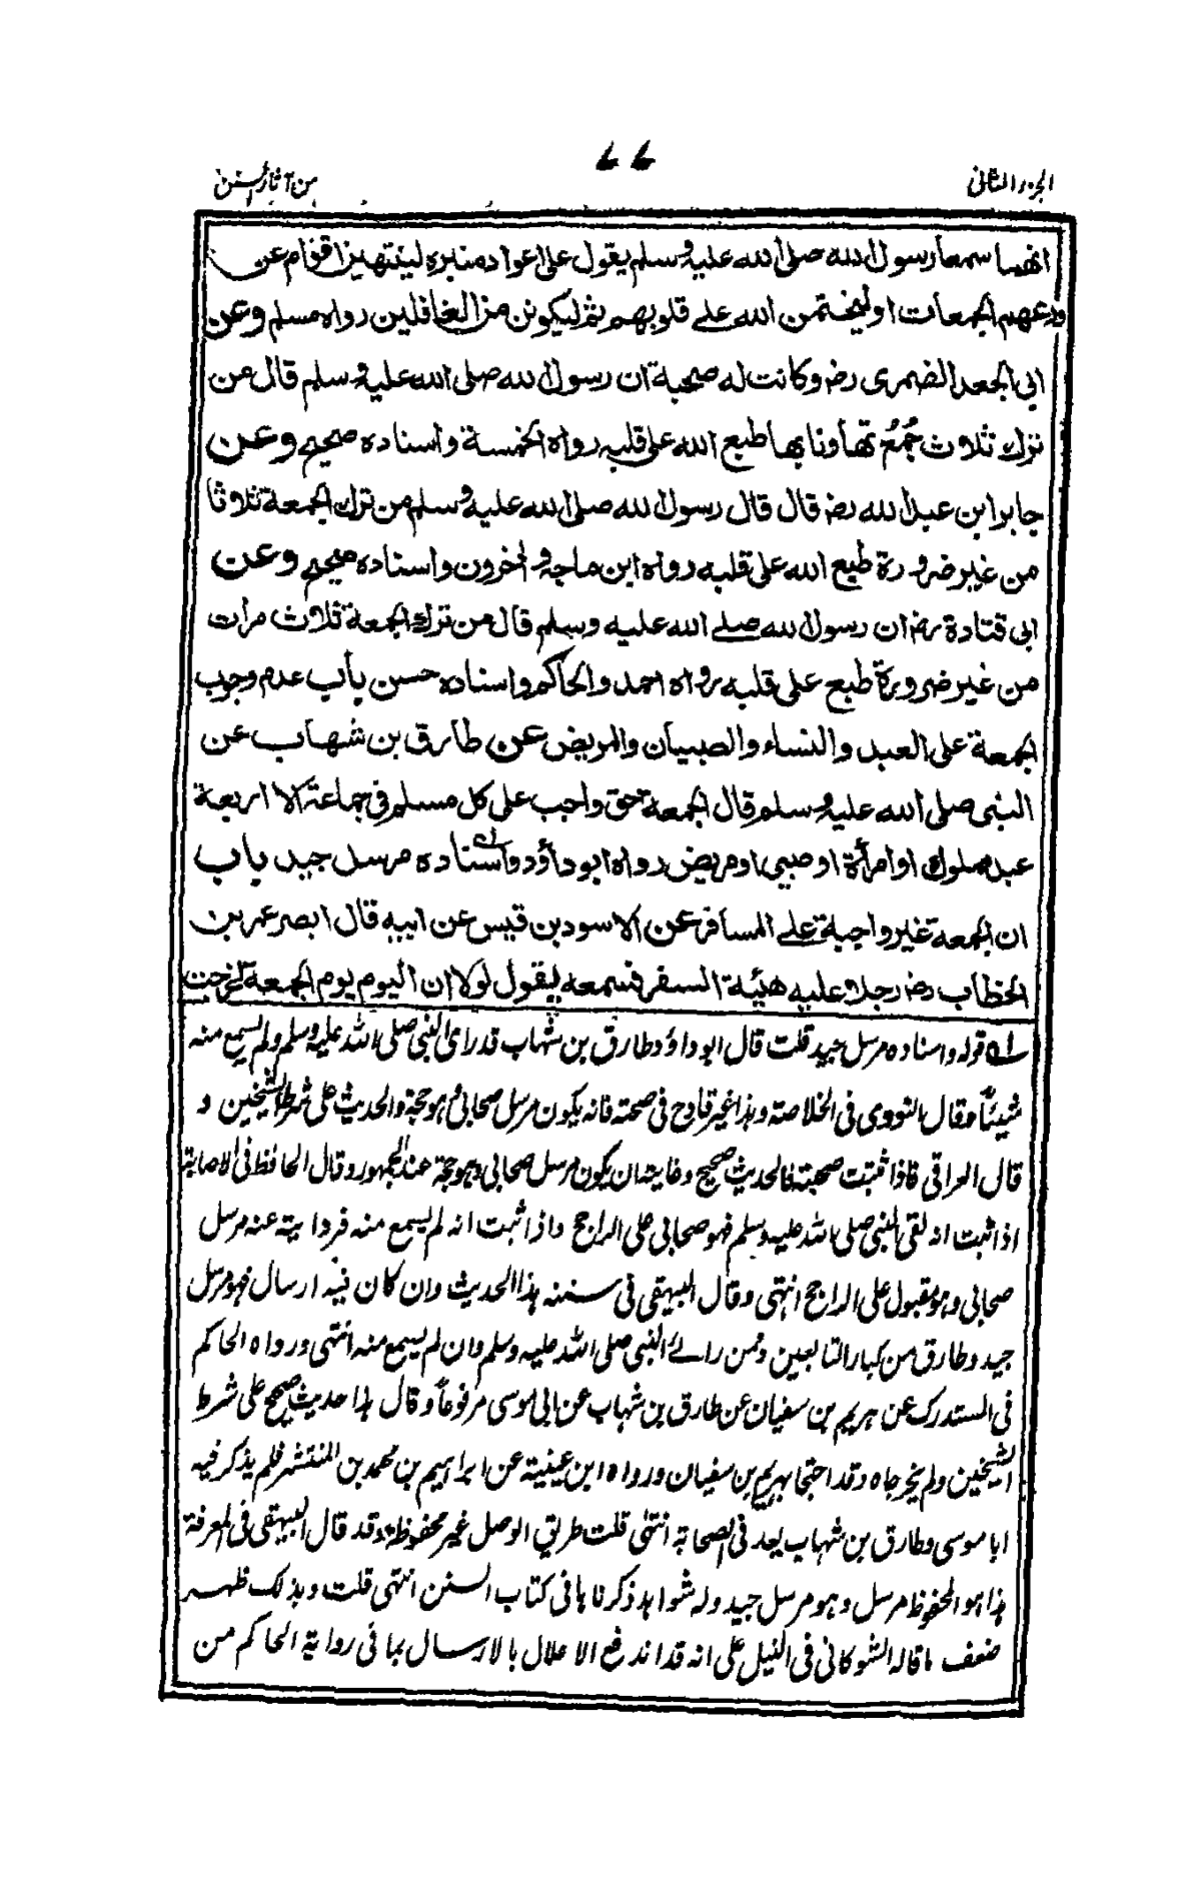 الجزء الثاني
٧٧
من آثار السنن
انهما سمعا رسول الله صلى الله عليه وسلم يقول على اعواد منبره لينتهين اقوام عن
ودعهم الجمعات اوليختمن الله على قلوبهم ثم ليكونن من الغافلين رواه مسلم وعن
ابي الجعد الضمرى رضـ وكانت له صحبة ان رسول الله صلى الله عليه وسلم قال من
ترك ثلاث جُمَعٍ تهاونا بها طبع الله على قلبه رواه الخمسة واسناده صحيح وعن
جابر ابن عبد الله رضـ قال قال رسول الله صلى الله عليه وسلم من ترك الجمعة ثلاثا
من غير ضرورة طبع الله على قلبه رواه ابن ماجة واخرون واسناده صحيح وعن
ابى قتادة رضـ ان رسول الله صلى الله عليه وسلم قال من ترك الجمعة ثلاث مرات
من غير ضرورة طبع على قلبه رواه احمد والحاكم واسناده حسن باب عدم وجوب
الجمعة على العبد والنساء والصبيان والمريض عن طارق بن شهاب عن
النبى صلى الله عليه وسلم قال الجمعة حق واجب على كل مسلم فى جماعة الا اربعة
عبد مملوك او امرأة او صبى او مريض رواه ابو داؤد واسناده مرسل جيد باب
ان الجمعة غير واجبة على المسافر عن الاسود بن قيس عن ابيه قال ابصر عمر بن
الخطاب رضـ رجلا عليه هيئة السفر فسمعه يقول لولا ان اليوم يوم الجمعة لخرجت
له قوله واسناده مرسل جيد قلت قال ابو داؤد طارق بن شهاب قد راى النبى صلى الله عليه وسلم ولم يسمع منه
شيئاً وقال النووى فى الخلاصة وهذا غير قادح فى صحته فانه يكون مرسل صحابىٍ وهو حجة والحديث على شرط الشيخين و
قال العراقى فاذا ثبتت صحبته فالحديث صحيح وغايته ان يكون مرسل صحابى وهو حجة عند الجمهور وقال الحافظ فى الاصابة
اذا ثبت انه لقى النبى صلى الله عليه وسلم فهو صحابى على الراجح واذا ثبت انه لم يسمع منه فروايته عنه مرسل
صحابى وهو مقبول على الراجح انتهى وقال البيهقى فى سننه هذا الحديث وان كان فيه ارسال فهو مرسل
جيد وطارق من كبار التابعين وممن راى النبى صلى الله عليه وسلم وان لم يسمع منه انتهى ورواه الحاكم
فى المستدرك عن هريم بن سفيان عن طارق بن شهاب عن ابى موسى مرفوعاً وقال هذا حديث صحيح على شرط
الشيخين ولم يخرجاه وقد احتجا بهريم بن سفيان ورواه ابن عيينة عن ابراهيم بن محمد بن المنتشر فلم يذكر فيه
ابا موسى وطارق بن شهاب يعد فى الصحابة انتهى قلت طريق الوصل غير محفوظة وقد قال البيهقى فى المعرفة
هذا هو المحفوظ مرسل وهو مرسل جيد وله شواهد ذكرناها فى كتاب السنن انتهى قلت وبذلك ظهر
ضعف ما قاله الشوكانى فى النيل على انه قد اندفع الاعلال بالارسال بما فى رواية الحاكم من